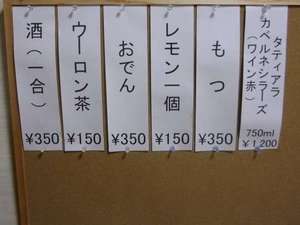 タティアラ
カベルネシラーズ
(ワイン赤)
750ml
¥1,200
もつ
¥350
レモン一個
¥150
おでん
¥350
ウーロン茶
¥150
酒(一合)
¥350